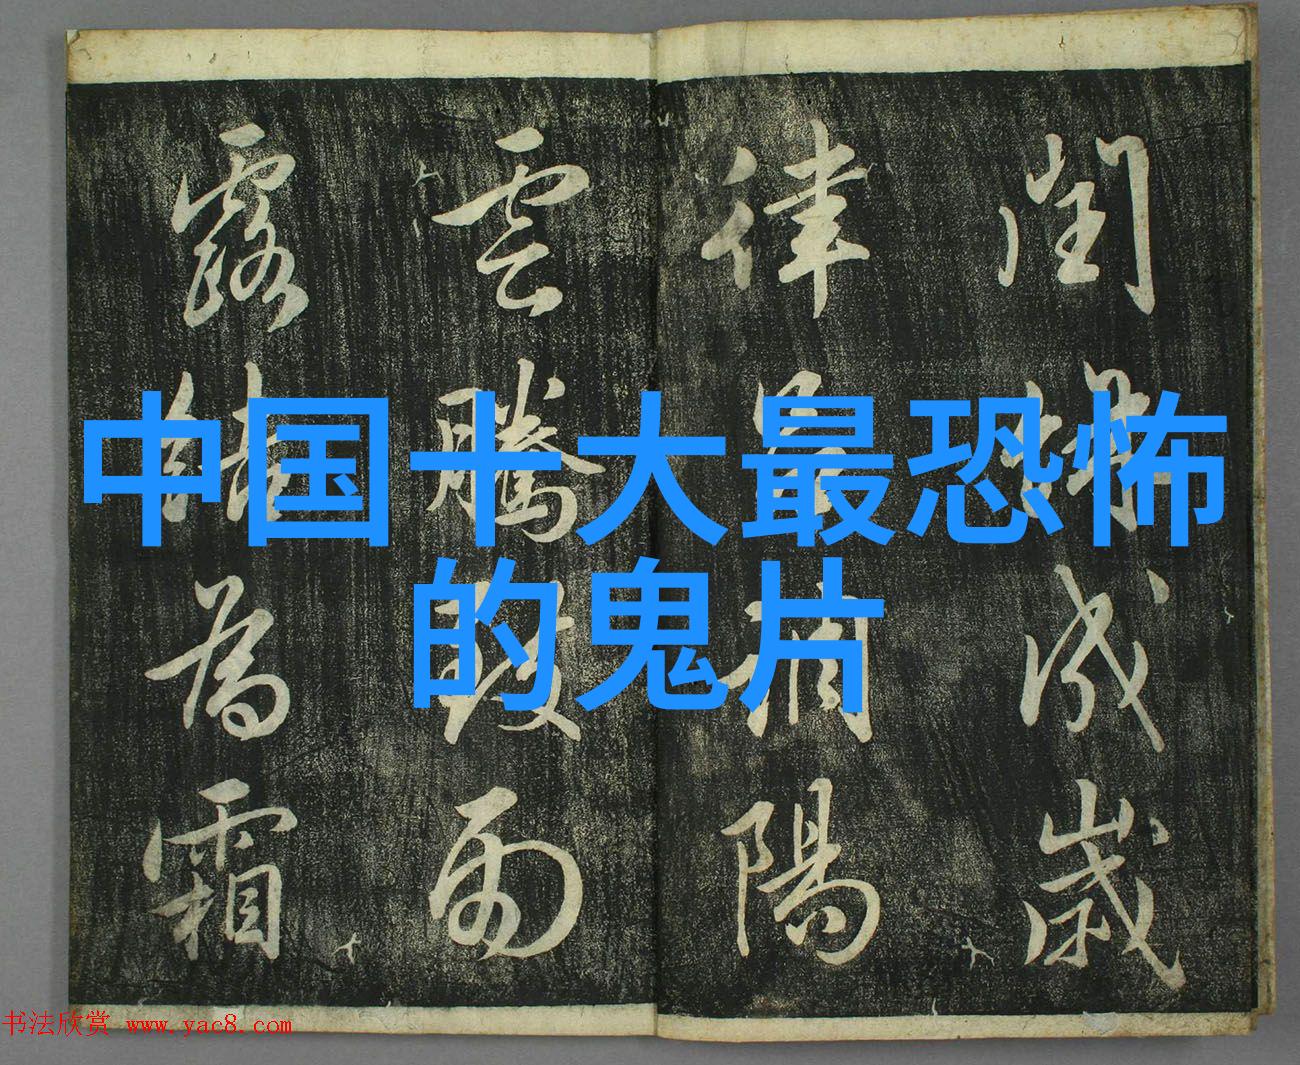 中国十大最恐怖
的鬼片
闰
成歲
律吕
調陽
雲騰
致雨
露結
為霜
书法欣赏 www.yac8.com